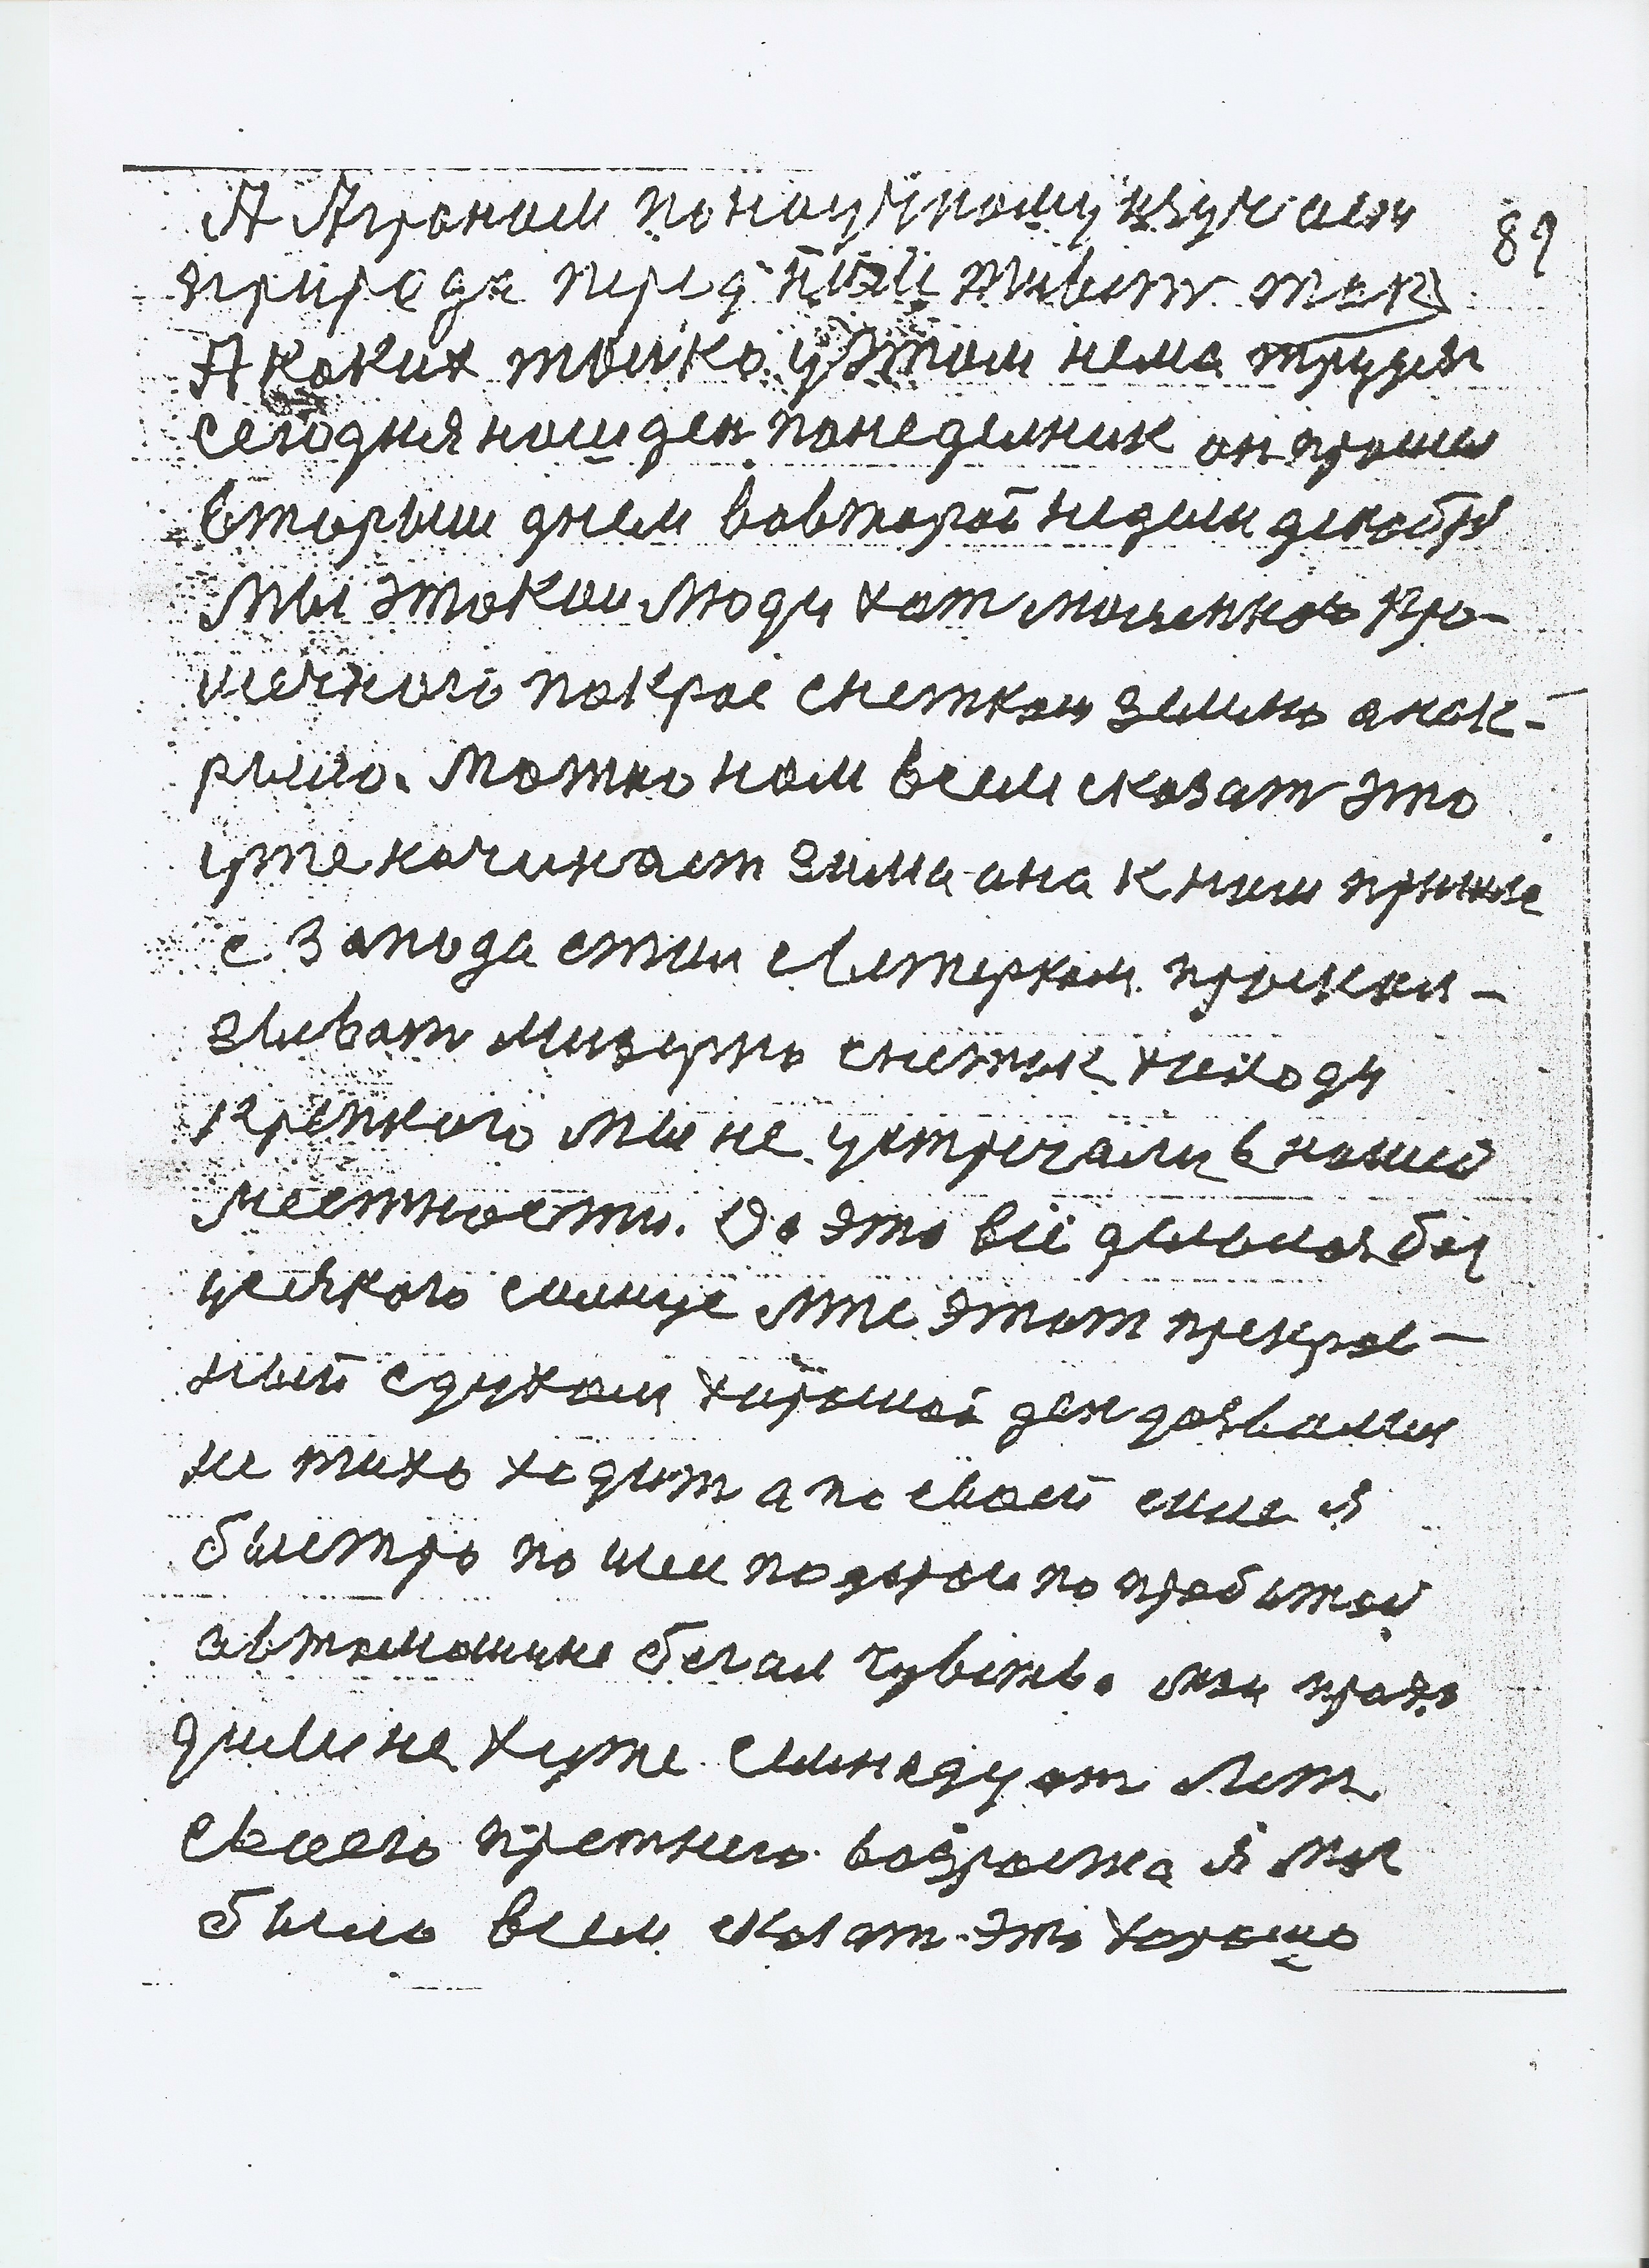 А Агроном по научному изучали 89
природа перед ними живет так
А каких только у этом нема трудов
сегодня наш ден понеделник он прошел
вторым днем вовторой недели декабря
Мы этокии люди хот маленкого кро-
шечного покрое снежком землю а нак-
рыло. Можно нам всем сказат это
уже начинает зима она к ним пришле
с запода стои с ветерком пронки-
зливат мизерно снежик холоди
крепкого мы не устречали в нашей
местности. Да это всё делалося без
усякого солнце мне этот прекрас-
ный с духом хорошой ден дозвалил
не тихо ходит а по своей силе я
быстро по ней подуром по пробитой
автомашине бегал чувств. мы прохо
дили не хуже симнадцат лет
своего прежнего возроста я мог
было всем сказат это хорошо